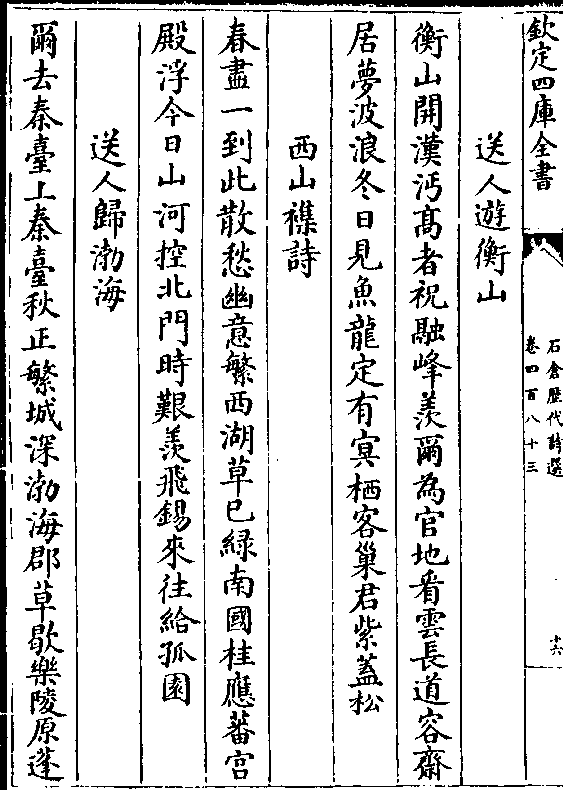 欽定四庫全書
石倉歷代詩選
卷四百八十三
十六
送人遊衡山
衡山開漢沔髙者祝融峰羨爾為官地看雲長道容齋
居夢波浪冬日見魚龍定有㝠栖客巢君紫蓋松
西山襍詩
春盡一到此散愁幽意繁西湖草已綠南國桂應蕃宫
殿浮今日山河控北門時艱羨飛錫來往給孤園
送人歸渤海
爾去秦臺上秦臺秋正繁城深渤海郡草歇樂陵原蓬